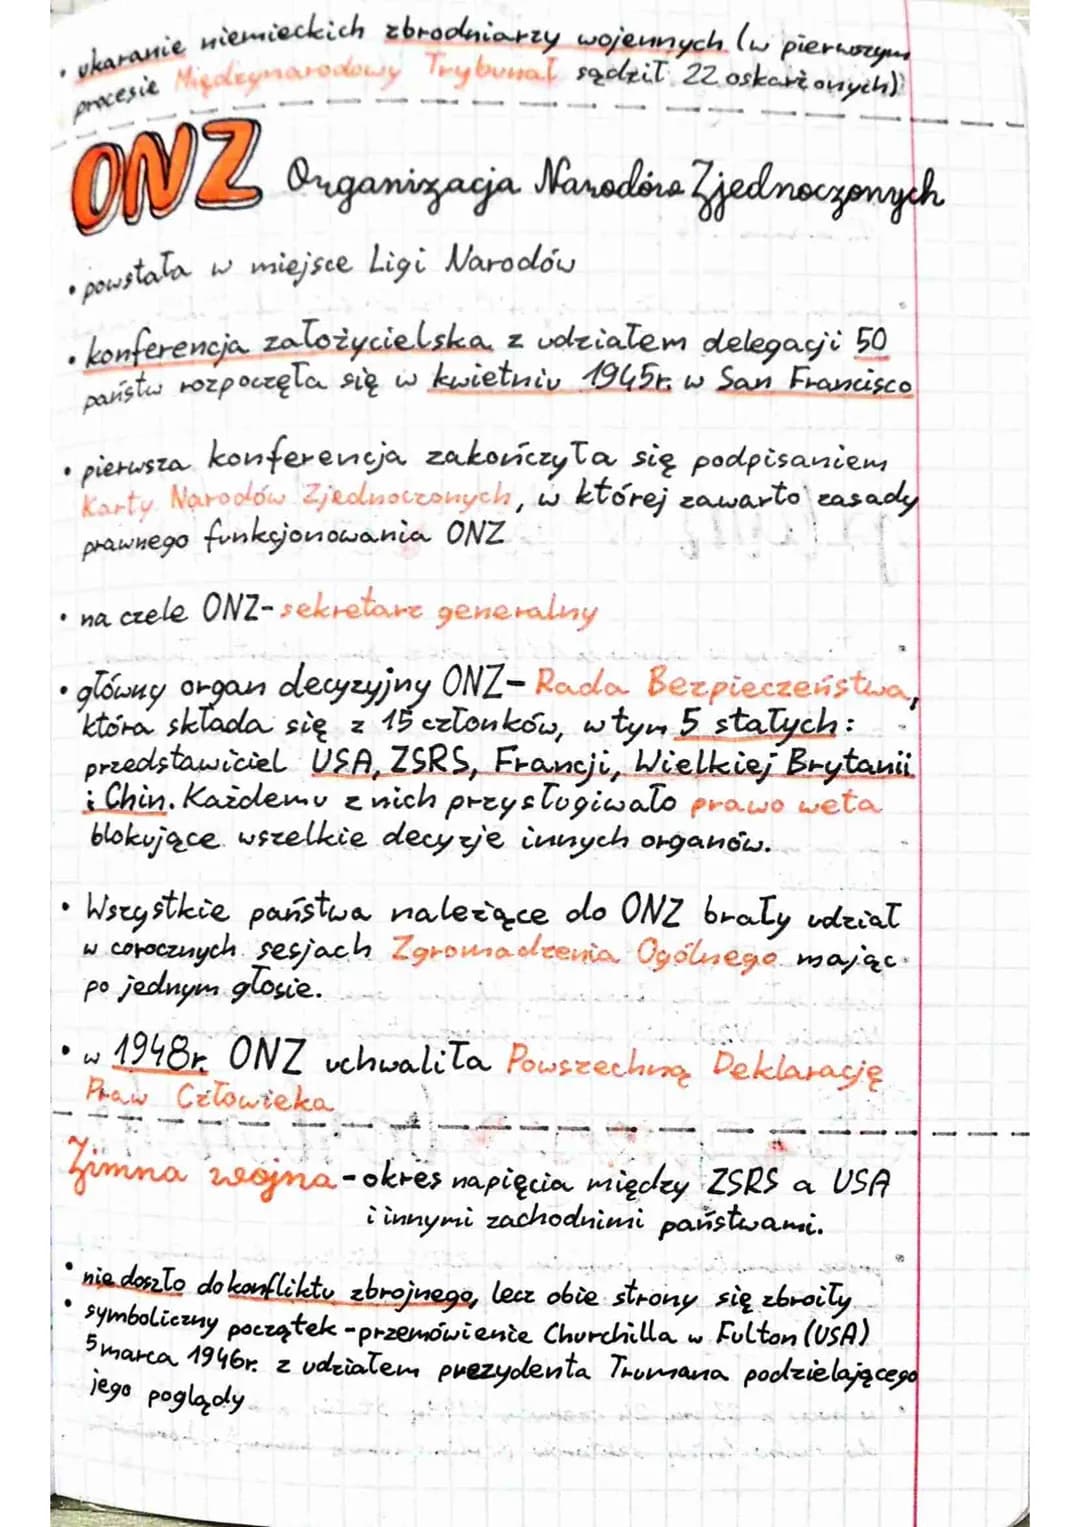 • ukaranie niemieckich zbrodniarzy wojennych (w pierwszym
procesie Międzynarodowy Trybunał sądził 22 oskarżonych)
ONZ Organizacja Narodów Zjednoczonych
• powstała w miejsce Ligi Narodów
• konferencja założycielska z udziałem delegacji 50
państw rozpoczęła się w kwietniu 1945r. w San Francisco
• pierwsza konferencja zakończyła się podpisaniem
Karty Narodów Zjednoczonych, w której zawarto zasady
prawnego funkcjonowania ONZ
• na czele ONZ- sekretarz generalny
• główny organ decyzyjny ONZ- Rada Bezpieczeństwa,
która składa się z 15 członków, w tym 5 stałych:
przedstawiciel USA, ZSRS, Francji, Wielkiej Brytanii
i Chin. Każdemu z nich przysługiwało prawo weta
blokujące wszelkie decyzje innych organów.
• Wszystkie państwa należące do ONZ brały udział
w corocznych sesjach Zgromadzenia Ogólnego mając
po jednym głosie.
• w 1948r. ONZ uchwaliła Powszechną Deklarację
Praw Człowieka
Zimna wojna - okres napięcia między ZSRS a USA
i innymi zachodnimi państwami.
• nie doszło do konfliktu zbrojnego, lecz obie strony się zbroiły
• symboliczny początek - przemówienie Churchilla w Fulton (USA)
5 marca 1946r. z udziałem prezydenta Trumana podzielającego
jego poglądy